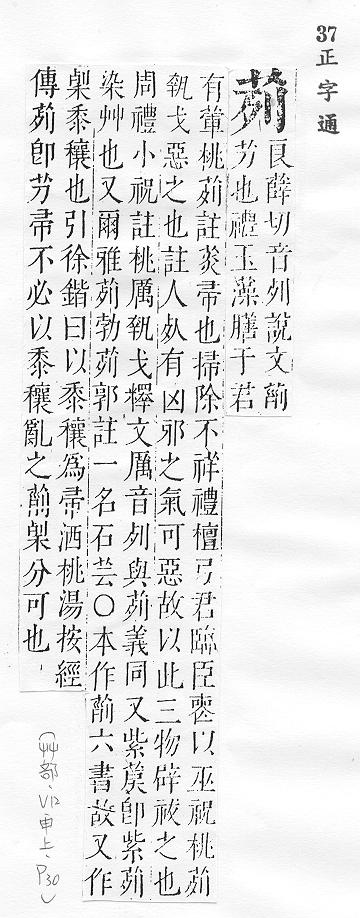 37 正字通
茢
良薛切音列說文𦱂
芀也禮玉藻膳于君
有葷桃茢註菼帚也掃除不祥禮檀弓君臨臣喪以巫祝桃茢
執戈惡之也註人死有凶邪之氣可惡故以此三物辟祓之也
周禮小祝註桃厲執戈釋文厲音列與茢義同又紫䓞卽紫茢
染艸也又爾雅茢勃茢郭註一名石芸○本作𦱂六書故又作
𥠹黍穰也引徐鍇曰以黍穰爲帚洒桃湯按經
傳茢卽芀帚不必以黍穰亂之𦱂𥠹分可也
(艸部、V12申上、P30)